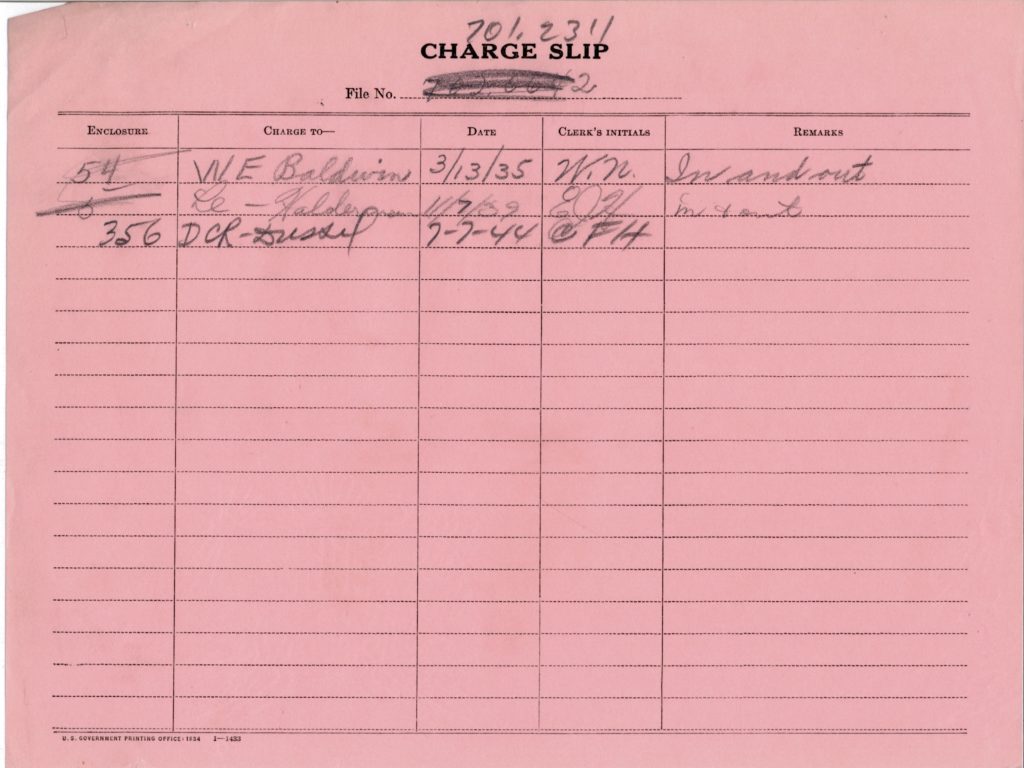 701.2311
CHARGE SLIP
File No. 2
ENCLOSURE CHARGE TO— DATE CLERK'S INITIALS REMARKS
54 W E Baldwin 3/13/35 W.N. In and out
Le - Halderman 11/7/39 EJH In & out
356 DCR-Dussel 7-7-44 CFH
U. S. GOVERNMENT PRINTING OFFICE: 1934 1—1433